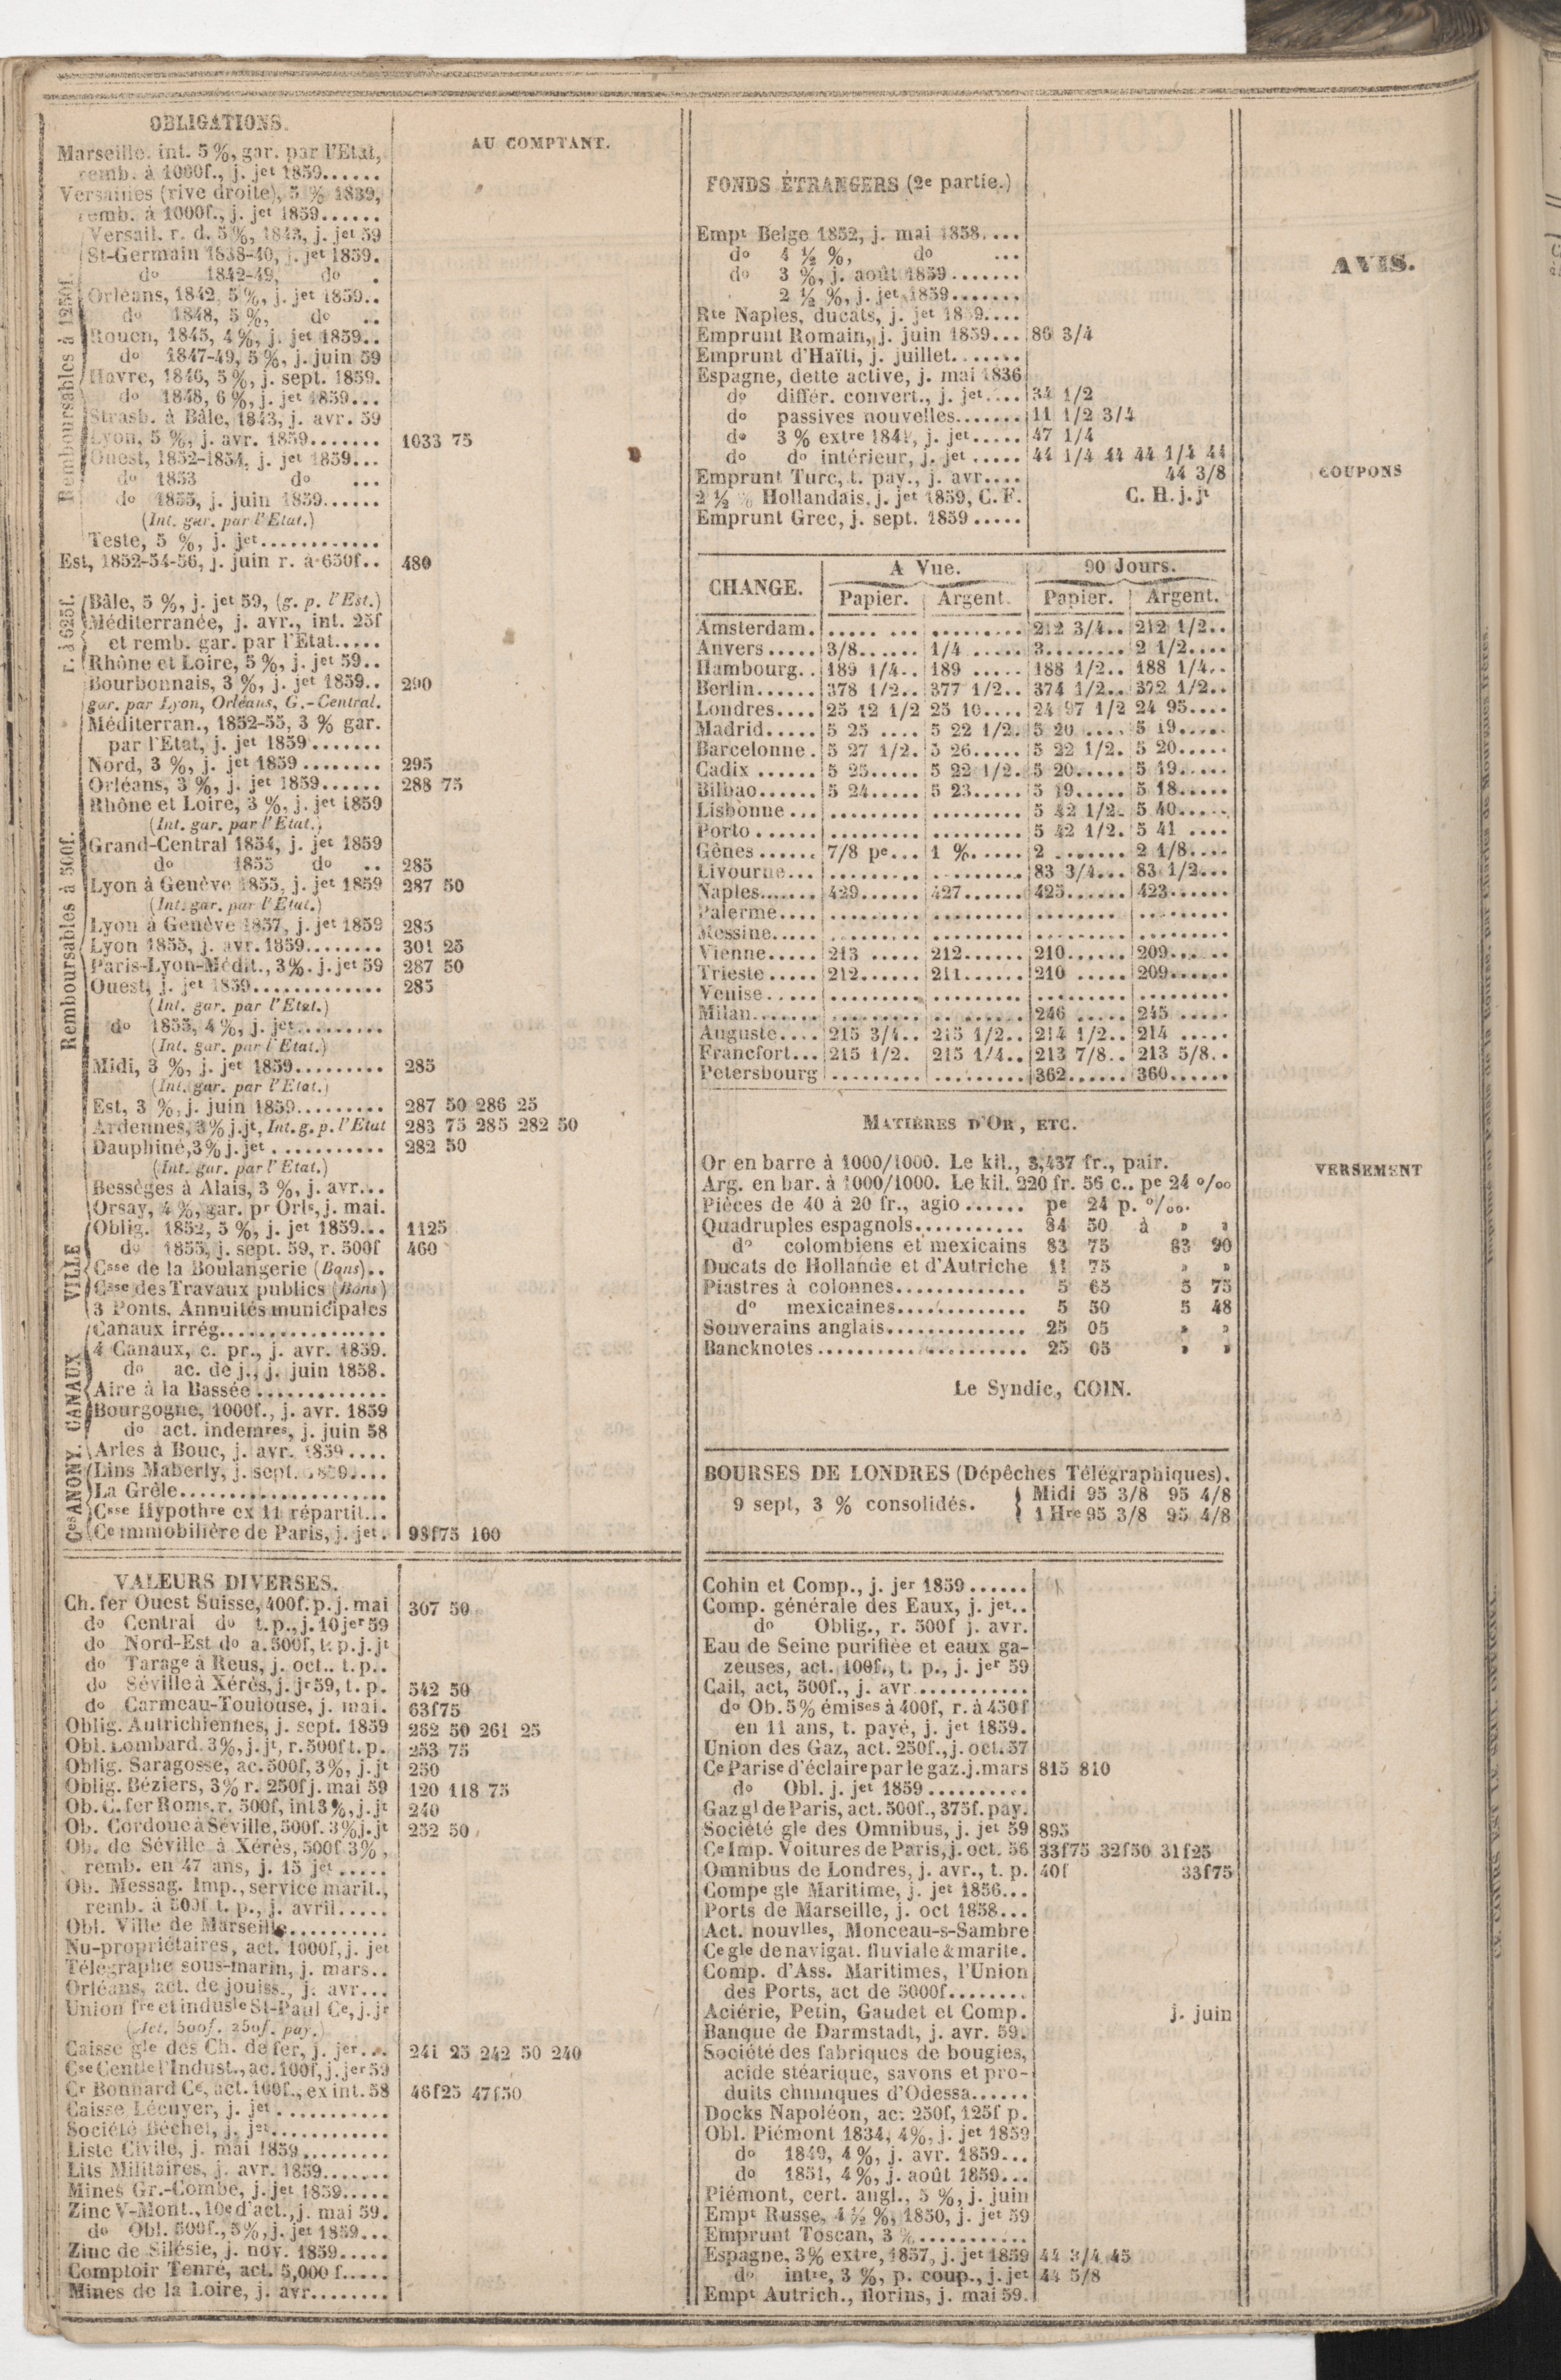 OBLIGATIONS.
AU COMPTANT.
Marseille. int. 5 %, gar. par l'Etat,
remb. à 1000f., j. jet 1859......
Versailles (rive droite), 5 % 1839,
remb. à 1000f., j. jet 1859......
Remboursables à 1250f.
Versail. r. d. 5 %, 1843, j. jet 59
St-Germain 1838-40, j. jet 1859.
do 1842-49, do .
Orléans, 1842, 5 %, j. jet 1859..
do 1848, 5 %, do ..
Rouen, 1845, 4 %, j. jet 1859..
do 1847-49, 5 %, j. juin 59
Havre, 1846, 5 %, j. sept. 1859.
do 1848, 6 %, j. jet 1859...
Strasb. à Bâle, 1843, j. avr. 59
Lyon, 5 %, j. avr. 1859....... 1033 75
Ouest, 1852-1854, j. jet 1859...
do 1853 do ...
do 1855, j. juin 1859......
(Int. gar. par l'Etat.)
Teste, 5 %, j. jet............
Est, 1852-54-56, j. juin r. à 650f.. 480
r. à 625f.
Bâle, 5 %, j. jet 59, (g. p. l'Est.)
Méditerranée, j. avr., int. 25f
et remb. gar. par l'Etat.....
Rhône et Loire, 5 %, j. jet 59..
Remboursables à 500f.
Bourbonnais, 3 %, j. jet 1859.. 290
gar. par Lyon, Orléans, G.-Central.
Méditerran., 1852-55, 3 % gar.
par l'Etat, j. jet 1859.......
Nord, 3 %, j. jet 1859........ 295
Orléans, 3 %, j. jet 1859...... 288 75
Rhône et Loire, 3 %, j. jet 1859
(Int. gar. par l'Etat.)
Grand-Central 1854, j. jet 1859
do 1855 do .. 285
Lyon à Genève 1855, j. jet 1859 287 50
(Int. gar. par l'Etat.)
Lyon à Genève 1857, j. jet 1859 285
Lyon 1855, j. avr. 1859........ 301 25
Paris-Lyon-Médit., 3%. j. jet 59 287 50
Ouest, j. jet 1859............. 285
(Int. gar. par l'Etat.)
do 1855, 4 %, j. jet.........
(Int. gar. par l'Etat.)
Midi, 3 %, j. jet 1859......... 285
(Int. gar. par l'Etat.)
Est, 3 %, j. juin 1859......... 287 50 286 25
Ardennes, 3% j. jt, Int. g. p. l'Etat 283 75 285 282 50
Dauphiné, 3% j. jet........... 282 50
(Int. gar. par l'Etat.)
Bessèges à Alais, 3 %, j. avr...
Orsay, 4 %, gar. pr Orls, j. mai.
VILLE
Oblig. 1852, 5 %, j. jet 1859... 1125
do 1855, j. sept. 59, r. 500f 460
Csse de la Boulangerie (Bons)..
Csse des Travaux publics (Bons)
3 Ponts, Annuités municipales
CANAUX
Canaux irrég.................
4 Canaux, c. pr., j. avr. 1859.
do ac. de j., j. juin 1858.
Aire à la Bassée.............
Bourgogne, 1000f., j. avr. 1859
do act. indemres, j. juin 58
Arles à Bouc, j. avr. 1859....
Ces ANONY.
Lins Maberly, j. sept. 1859....
La Grêle.....................
Csse Hypothre ex 11 répartit...
Ce immobilière de Paris, j. jet. 98f75 100
VALEURS DIVERSES.
Ch. fer Ouest Suisse, 400f. p. j. mai 307 50
do Central do t. p., j. 10 jer 59
do Nord-Est do a. 500f, t. p. j. jt
do Tarage à Reus, j. oct.. t. p..
do Séville à Xérès, j. jr 59, t. p. 542 50
do Carmeau-Toulouse, j. mai. 63f75
Oblig. Autrichiennes, j. sept. 1859 262 50 261 25
Obl. Lombard. 3%, j. jt, r. 500f t. p. 253 75
Oblig. Saragosse, ac. 500f, 3%, j. jt 250
Oblig. Béziers, 3% r. 250f j. mai 59 120 118 75
Ob. C. fer Roms. r. 500f, int 3%, j. jt 240
Ob. Cordoue à Séville, 500f. 3% j. jt 252 50
Ob. de Séville à Xérès, 500f 3%,
remb. en 47 ans, j. 15 jet.....
Ob. Messag. Imp., service marit.,
remb. à 500f t. p., j. avril.....
Obl. Ville de Marseille..........
Nu-propriétaires, act. 1000f, j. jet
Télégraphe sous-marin, j. mars..
Orléans, act. de jouiss., j. avr...
Union fre et indusle St-Paul Ce, j. jr
(Act. 500f. 250f. pay.)
Caisse gle des Ch. de fer, j. jer... 241 25 242 50 240
Cse Centle l'Indust., ac. 100f, j. jer 59
Cr Bonnard Ce, act. 100f., ex int. 58 46f25 47f50
Caisse Lécuyer, j. jet...........
Société Béchet, j. jet............
Liste Civile, j. mai 1859.........
Lits Militaires, j. avr. 1859.......
Mines Gr.-Combe, j. jet 1859.....
Zinc V-Mont., 10e d'act., j. mai 59.
do Obl. 500f., 5%, j. jet 1859...
Zinc de Silésie, j. nov. 1859.....
Comptoir Tenré, act. 5,000 f.....
Mines de la Loire, j. avr........
FONDS ÉTRANGERS (2e partie.)
Empt Belge 1852, j. mai 1858....
do 4 ½ %, do ...
do 3 %, j. août 1859.......
2 ½ %, j. jet 1859.......
Rte Naples, ducats, j. jet 1859....
Emprunt Romain, j. juin 1859... 86 3/4
Emprunt d'Haïti, j. juillet.......
Espagne, dette active, j. mai 1836
do différ. convert., j. jet.... 34 1/2
do passives nouvelles....... 11 1/2 3/4
do 3 % extre 1841, j. jet..... 47 1/4
do do intérieur, j. jet..... 44 1/4 44 44 1/4 44
Emprunt Turc, t. pay., j. avr.... 44 3/8
2 ½ % Hollandais, j. jet 1859, C. F. C. H. j. jt
Emprunt Grec, j. sept. 1859.....
CHANGE. A Vue. 90 Jours.
Papier. Argent. Papier. Argent.
Amsterdam. ..... ... ......... 212 3/4.. 212 1/2..
Anvers..... 3/8...... 1/4...... 3........ 2 1/2....
Hambourg.. 189 1/4.. 189 ..... 188 1/2.. 188 1/4..
Berlin...... 378 1/2.. 377 1/2.. 374 1/2.. 372 1/2..
Londres.... 25 12 1/2 25 10.... 24 97 1/2 24 95....
Madrid..... 5 25 .... 5 22 1/2. 5 20 .... 5 19.....
Barcelonne. 5 27 1/2. 5 26..... 5 22 1/2. 5 20.....
Cadix...... 5 25..... 5 22 1/2. 5 20..... 5 19.....
Bilbao...... 5 24..... 5 23..... 5 19..... 5 18.....
Lisbonne... ......... ......... 5 42 1/2. 5 40.....
Porto...... ......... ......... 5 42 1/2. 5 41 ....
Gênes...... 7/8 pe... 1 %..... 2 ....... 2 1/8....
Livourne... ......... ......... 83 3/4... 83 1/2...
Naples...... 429...... 427...... 425...... 423......
Palerme.... ......... ......... ......... .........
Messine..... ......... ......... ......... .........
Vienne..... 213 ..... 212...... 210...... 209......
Trieste..... 212...... 211...... 210 ..... 209......
Venise..... ......... ......... ......... .........
Milan....... ......... ......... 246 ..... 245 .....
Auguste.... 215 3/4.. 215 1/2.. 214 1/2.. 214 .....
Francfort... 215 1/2. 215 1/4.. 213 7/8.. 213 5/8..
Petersbourg ......... ......... 362...... 360......
MATIÈRES D'OR, ETC.
Or en barre à 1000/1000. Le kil., 3,437 fr., pair.
Arg. en bar. à 1000/1000. Le kil. 220 fr. 56 c.. pe 24 o/oo
Pièces de 40 à 20 fr., agio...... pe 24 p. o/oo.
Quadruples espagnols........... 84 50 à » »
do colombiens et mexicains 83 75 83 90
Ducats de Hollande et d'Autriche 11 75 » »
Piastres à colonnes............. 5 65 5 75
do mexicaines............. 5 50 5 48
Souverains anglais.............. 25 05 » »
Bancknotes..................... 25 05 » »
Le Syndic, COIN.
BOURSES DE LONDRES (Dépêches Télégraphiques).
9 sept, 3 % consolidés. Midi 95 3/8 95 4/8
1 Hre 95 3/8 95 4/8
Cohin et Comp., j. jer 1859......
Comp. générale des Eaux, j. jet..
do Oblig., r. 500f j. avr.
Eau de Seine purifiée et eaux ga-
zeuses, act. 100f., t. p., j. jer 59
Cail, act, 500f., j. avr...........
do Ob. 5% émises à 400f, r. à 450f
en 11 ans, t. payé, j. jet 1859.
Union des Gaz, act. 250f., j. oct. 57
Ce Parise d'éclaire par le gaz. j. mars 815 810
do Obl. j. jet 1859..........
Gaz gl de Paris, act. 500f., 375f. pay.
Société gle des Omnibus, j. jet 59 895
Ce Imp. Voitures de Paris, j. oct. 56 33f75 32f50 31f25
Omnibus de Londres, j. avr., t. p. 40f 33f75
Compe gle Maritime, j. jet 1856...
Ports de Marseille, j. oct 1858...
Act. nouvlles, Monceau-s-Sambre
Ce gle de navigat. fluviale & marite.
Comp. d'Ass. Maritimes, l'Union
des Ports, act de 5000f........
Aciérie, Petin, Gaudet et Comp. j. juin
Banque de Darmstadt, j. avr. 59.
Société des fabriques de bougies,
acide stéarique, savons et pro-
duits chimiques d'Odessa......
Docks Napoléon, ac. 250f, 125f p.
Obl. Piémont 1834, 4%, j. jet 1859
do 1849, 4 %, j. avr. 1859...
do 1851, 4 %, j. août 1859...
Piémont, cert. angl., 5 %, j. juin
Empt Russe, 4 ½ %, 1850, j. jet 59
Emprunt Toscan, 3 %...........
Espagne, 3% extre, 1857, j. jet 1859 44 3/4 45
do intre, 3 %, p. coup., j. jet 44 5/8
Empt Autrich., florins, j. mai 59.
AVIS.
COUPONS
VERSEMENT